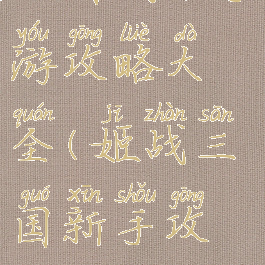 yóu gōng lüè dà
游攻略大
quán jī zhàn sān
全(姬战三
guó xīn shǒu gōng
国新手攻